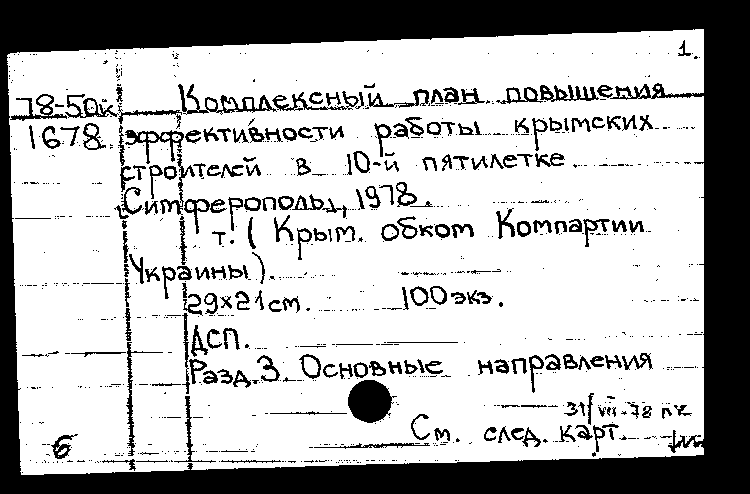 1.
78-50к Комплексный план повышения
1678 эффективности работы крымских
строителей в 10-й пятилетке.
Симферополь, 1978.
т. ( Крым. обком Компартии
Украины).
29х21см. 100экз.
ДСП.
Разд.3. Основные направления
31/VII-78
См. след. карт.
б